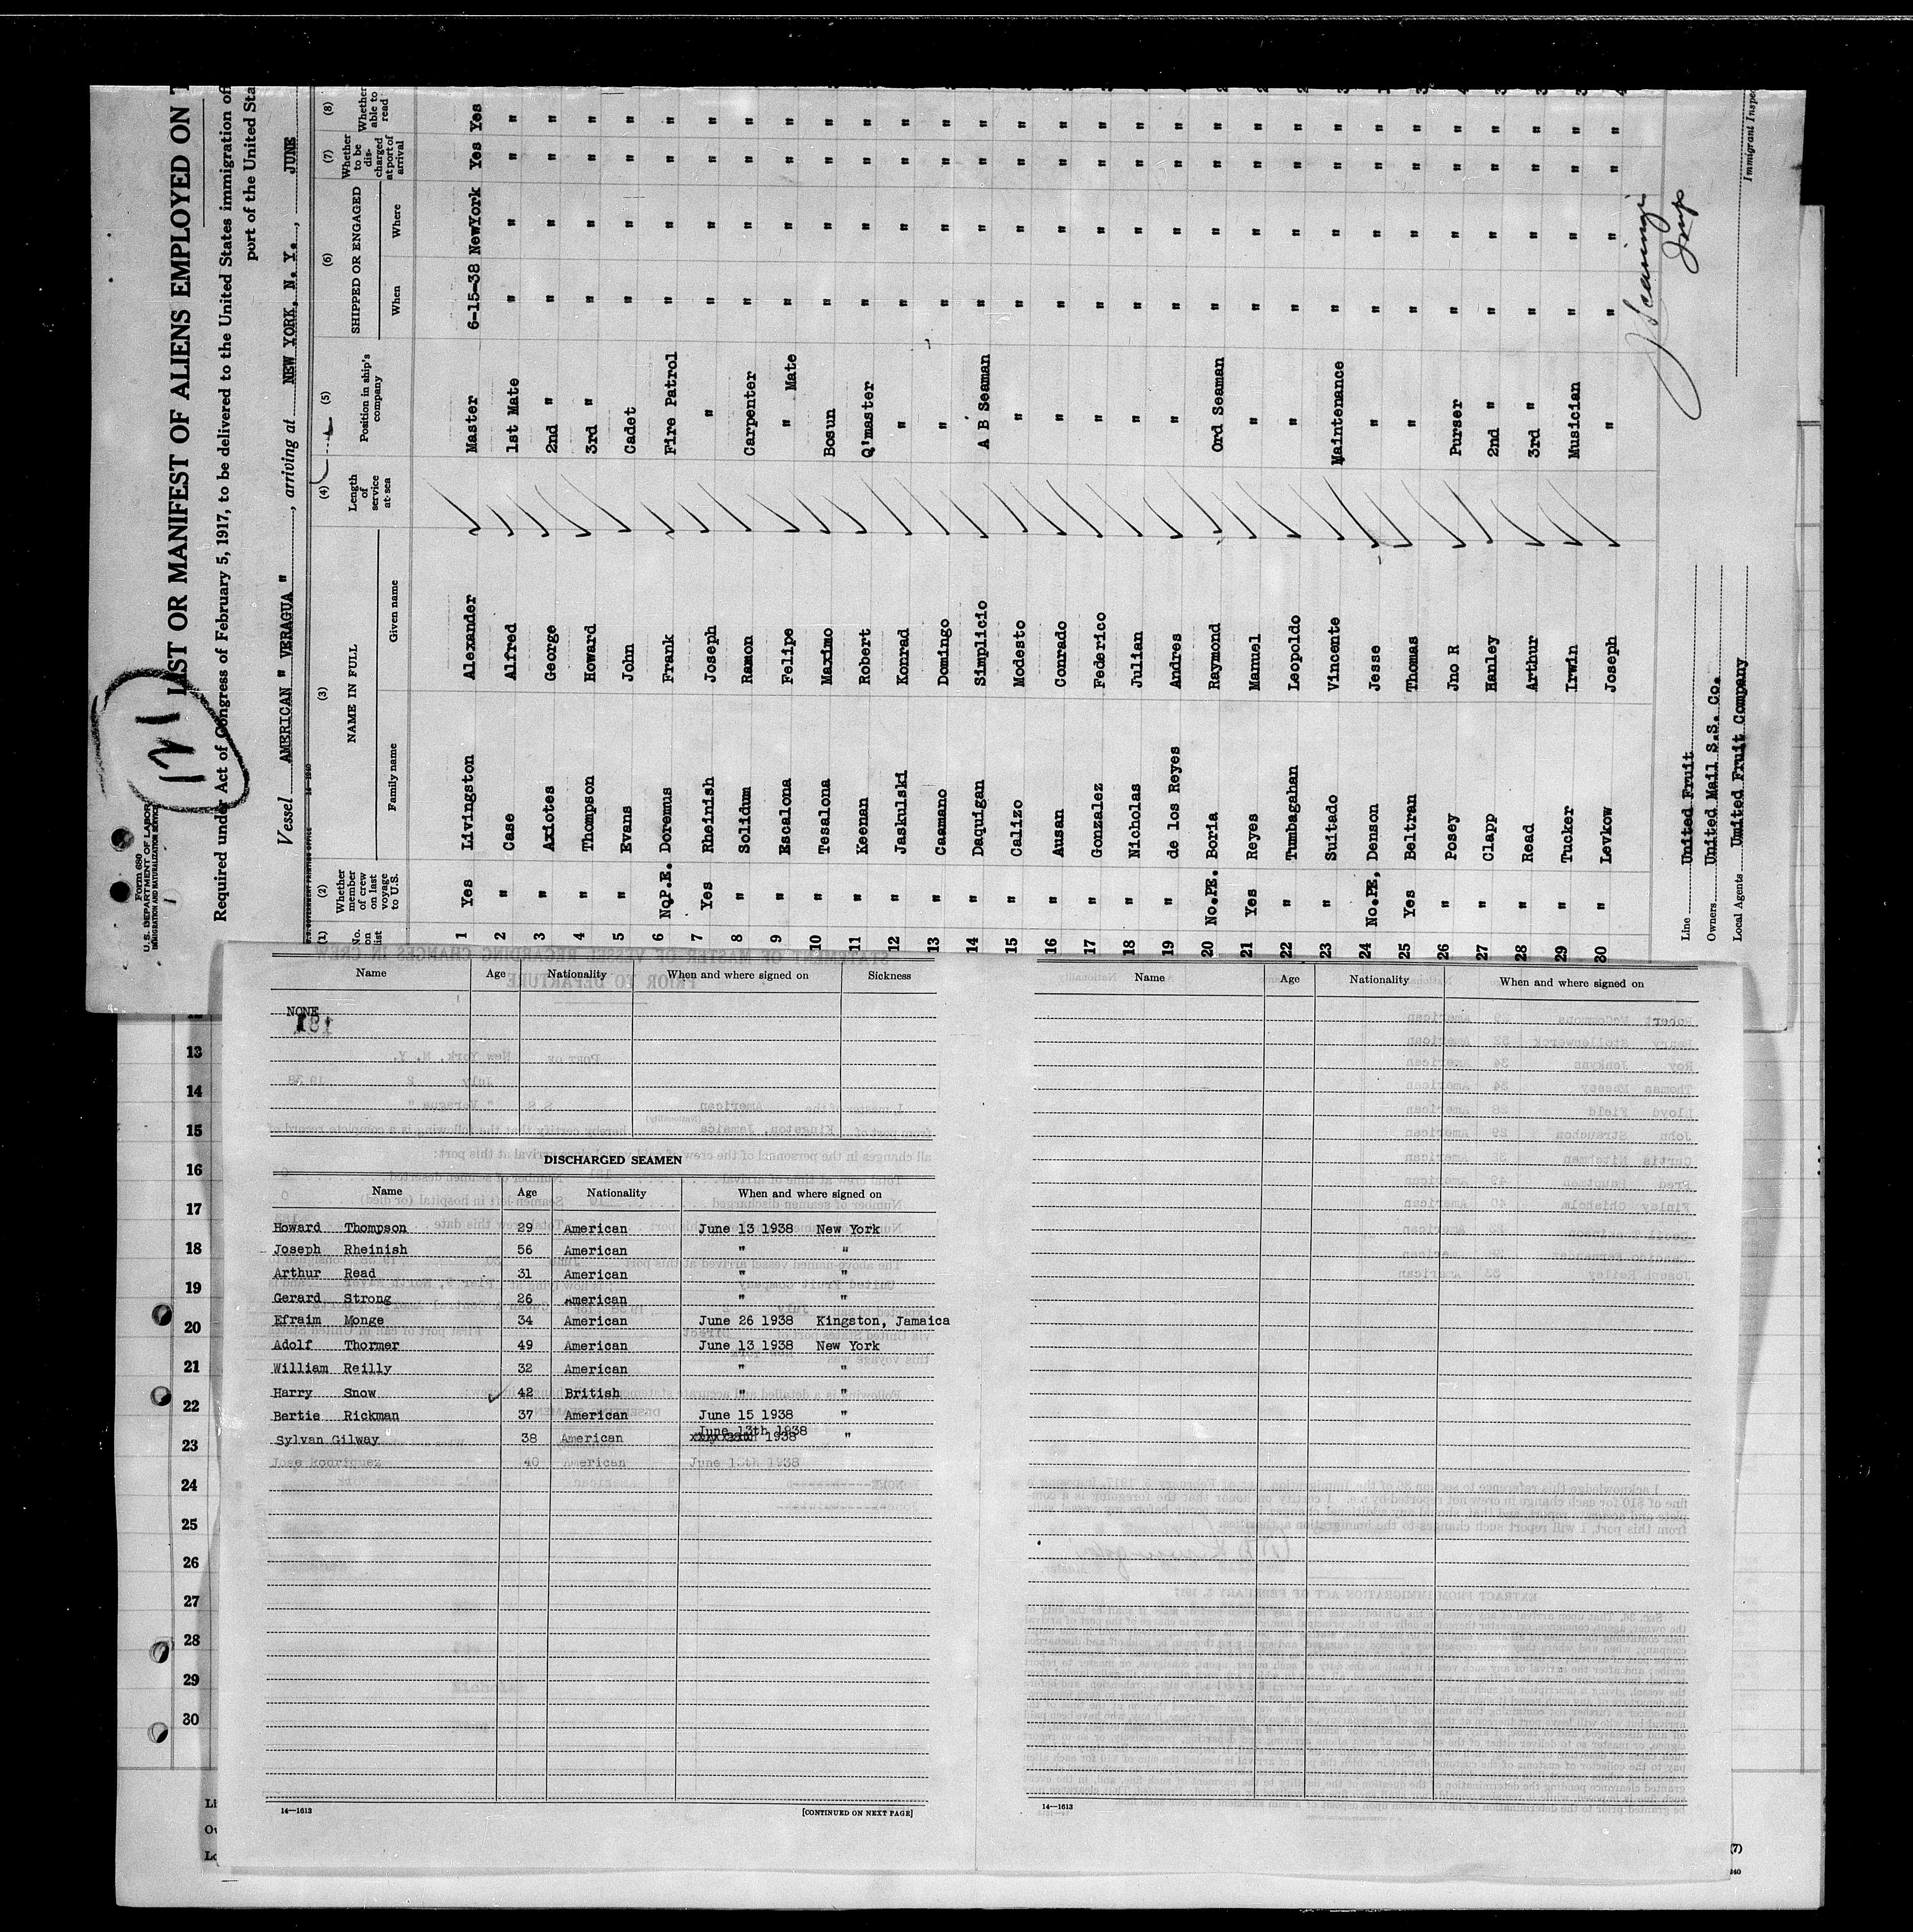 121
Form 680
U. S. DEPARTMENT OF LABOR
IMMIGRATION AND NATURALIZATION SERVICE
LIST OR MANIFEST OF ALIENS EMPLOYED ON T
Required under Act of Congress of February 5, 1917, to be delivered to the United States immigration of
port of the United Sta
Vessel AMERICAN " VERAGUA " , arriving at NEW YORK, N. Y. , JUNE
(1) (2) (3) (4) (5) (6) (7) (8)
No. on list Whether member of crew on last voyage to U.S. NAME IN FULL Family name Given name Length of service at sea Position in ship's company SHIPPED OR ENGAGED When Where Whether to be discharged at port of arrival Whether able to read
1 Yes Livingston Alexander Master 6-15-38 NewYork Yes Yes
2 " Case Alfred 1st Mate " " " "
3 " Axiotes George 2nd " " " " "
4 " Thompson Howard 3rd " " " " "
5 " Evans John Cadet " " " "
6 No.P.E. Doremus Frank Fire Patrol " " " "
7 Yes Rheinish Joseph " " " " "
8 " Solidum Ramon Carpenter " " " "
9 " Escalona Felipe " Mate " " " "
10 " Tesalona Maximo Bosun " " " "
11 " Keenan Robert Q'master " " " "
12 " Jaskulski Konrad " " " " "
13 " Caamano Domingo " " " " "
14 " Daquigan Simplicio A B Seaman " " " "
15 " Calizo Modesto " " " " "
16 " Ausan Conrado " " " " "
17 " Gonzalez Federico " " " " "
18 " Nicholas Julian " " " " "
19 " de los Reyes Andres " " " " "
20 No.PE. Boria Raymond Ord Seaman " " " "
21 Yes Reyes Manuel " " " " "
22 " Tumbagahan Leopoldo " " " " "
23 " Suitado Vincente Maintenance " " " "
24 No.PE, Denson Jesse " " " " "
25 Yes Beltran Thomas " " " " "
26 " Posey Jno R Purser " " " "
27 " Clapp Hanley 2nd " " " " "
28 " Read Arthur 3rd " " " " "
29 " Tucker Irwin Musician " " " "
30 " Levkow Joseph " " " " "
Line United Fruit
Owners United Mail S.S. Co.
Local Agents United Fruit Company
Immigrant Inspec
Name Age Nationality When and where signed on Sickness
NONE
181
DISCHARGED SEAMEN
Name Age Nationality When and where signed on
Howard Thompson 29 American June 13 1938 New York
Joseph Rheinish 56 American " "
Arthur Read 31 American " "
Gerard Strong 26 American " "
Efraim Monge 34 American June 26 1938 Kingston, Jamaica
Adolf Thormer 49 American June 13 1938 New York
William Reilly 32 American " "
Harry Snow 42 British " "
Bertie Rickman 37 American June 15 1938 "
Sylvan Gilway 38 American June 13th 1938 1938 "
Jose Rodriquez 40 American June 13th 1938
14—1613 [CONTINUED ON NEXT PAGE]
Name Age Nationality When and where signed on
14—1613
13
14
15
16
17
18
19
20
21
22
23
24
25
26
27
28
29
30